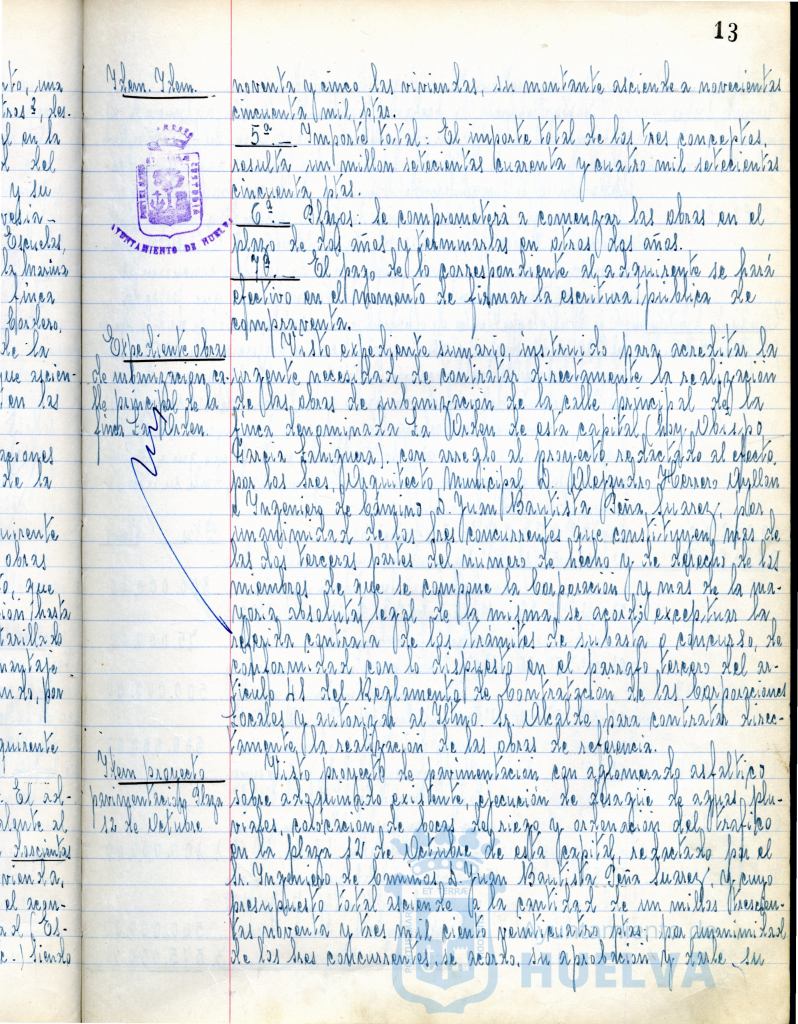 13
Idem. Idem.
noventa y cinco las viviendas, su montante asciende a novecientas
cincuenta mil ptas.
5ª.- Importe total: El importe total de los tres conceptos,
resulta un millon setecientas cuarenta y cuatro mil setecientas
cincuenta ptas.
6ª.- Plazos: Se comprometerá a comenzar las obras en el
plazo de dos años, y terminarlas en otros dos años.
7ª.- El pago de lo correspondiente al adquirente se hará
efectivo en el momento de firmar la escritura pública de
compraventa.
AYUNTAMIENTO DE HUELVA
Expediente obras
de urbanización, ca-
lle principal de la
finca La Orden.
Visto expediente sumario, instruido para acreditar la
urgente necesidad de contratar directamente la realización
de las obras de urbanización de la calle principal de la
finca denominada La Orden de esta capital (hoy Obispo
Garcia Lahiguera), con arreglo al proyecto redactado al efecto
por los Sres. Arquitecto Municipal D. Alejandro Herrero Ayllon
e Ingeniero de Camino D. Juan Bautista Peña Suarez, por
unanimidad de los Sres concurrentes que constituyen mas de
las dos terceras partes del número de hecho y de derecho de los
miembros de que se compone la Corporación y mas de la ma-
yoria absoluta legal de la misma, se acordó exceptuar la
referida contrata de los trámites de subasta o concurso, de
conformidad con lo dispuesto en el parrafo tercero del ar-
tículo 41 del Reglamento de Contratación de las Corporaciones
Locales y autorizar al Iltmo. Sr. Alcalde para contratar direc-
tamente la realización de las obras de referencia.
Idem proyecto
pavimentación Plaza
12 de Octubre
Visto proyecto de pavimentación con aglomerado asfaltico
sobre adoquinado existente, ejecución de desagüe de aguas plu-
viales, colocación de bocas de riego y ordenación del tráfico
en la plaza 12 de Octubre de esta capital, redactado por el
Sr. Ingeniero de Caminos D. Juan Bautista Peña Suarez, y cuyo
presupuesto total asciende a la cantidad de un millon trescien-
tas noventa y tres mil ciento veinticuatro ptas. por unanimidad
de los Sres concurrentes, se acordó, su aprobación y darle su
HUELVA